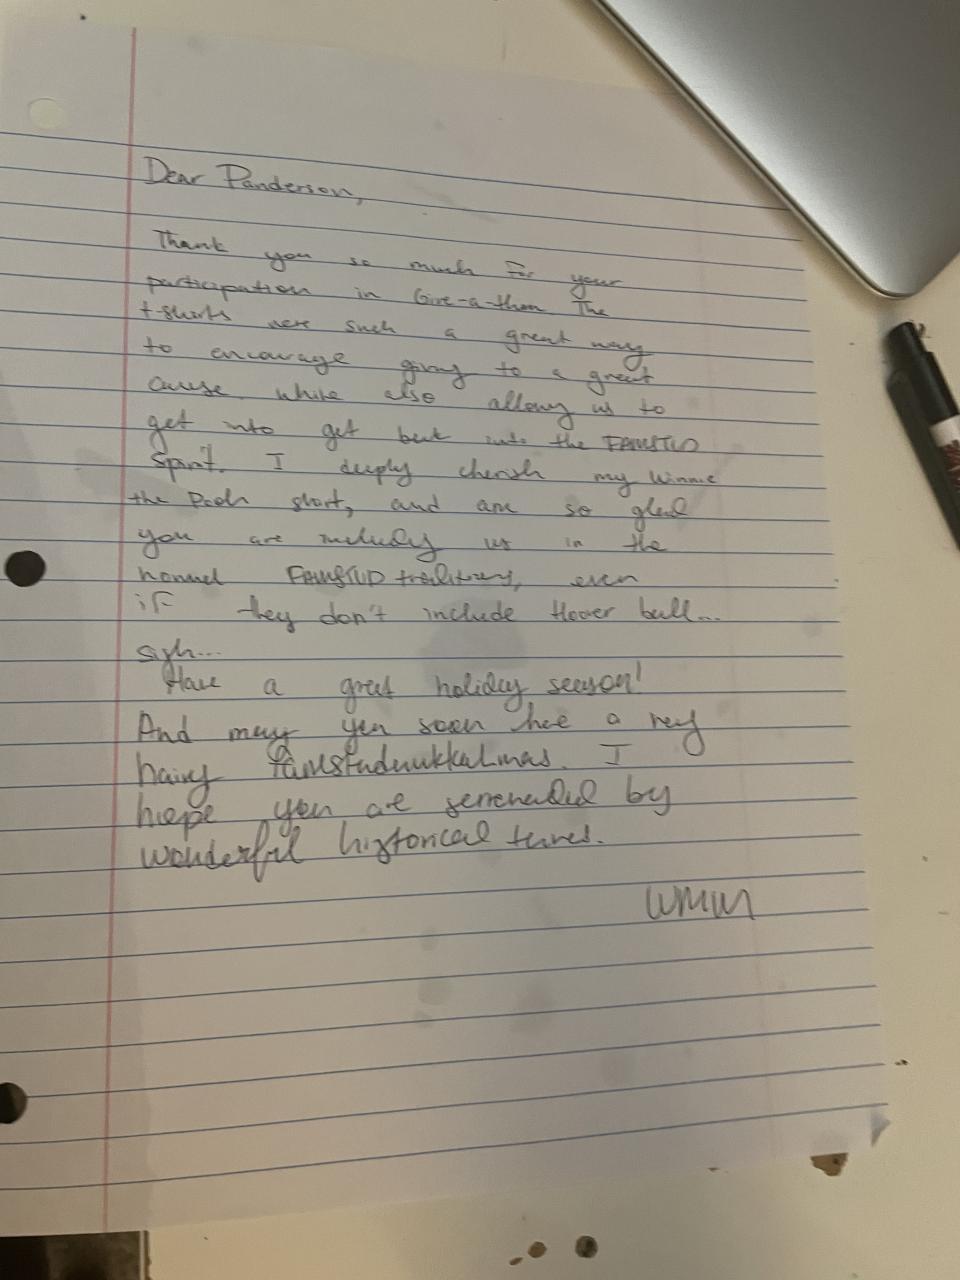 Dear Panderson,
Thank you so much for your
participation in Give-a-thon The
t-shirts were such a great way
to encourage giving to a great
cause, while also allowing us to
get into get back into the FAMSTUD
spirit. I deeply cherish my Winnie
the Pooh shirt, and am so glad
you are including us in the
honored FAMSTUD traditions, even
if they don't include Hoover ball...
sigh...
Have a great holiday season!
And may you soon have a very
hairy FamstudnukkaLmas. I
hope you are serenaded by
wonderful historical tunes.